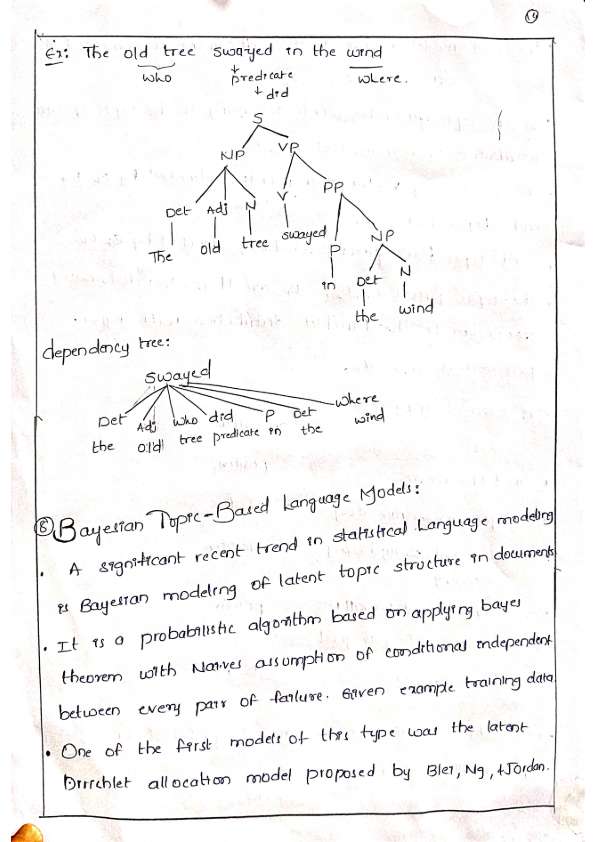 19
Ex: The old tree swayed in the wind
who predicate where.
did
S
NP VP
PP
Det Adj N V
NP
The old tree swayed P
in Det N
the wind
dependency tree:
Swayed
Det Adj who did P Det where
the old tree predicate in the wind
8 Bayesian Topic-Based Language Models:
• A significant recent trend in statistical Language modeling
is Bayesian modeling of latent topic structure in documents
• It is a probabilistic algorithm based on applying bayes
theorem with Naives assumption of conditional independent
between every pair of failure. Given example training data
• One of the first models of this type was the latent
Dirrchlet allocation model proposed by Blei, Ng, +Jordan.